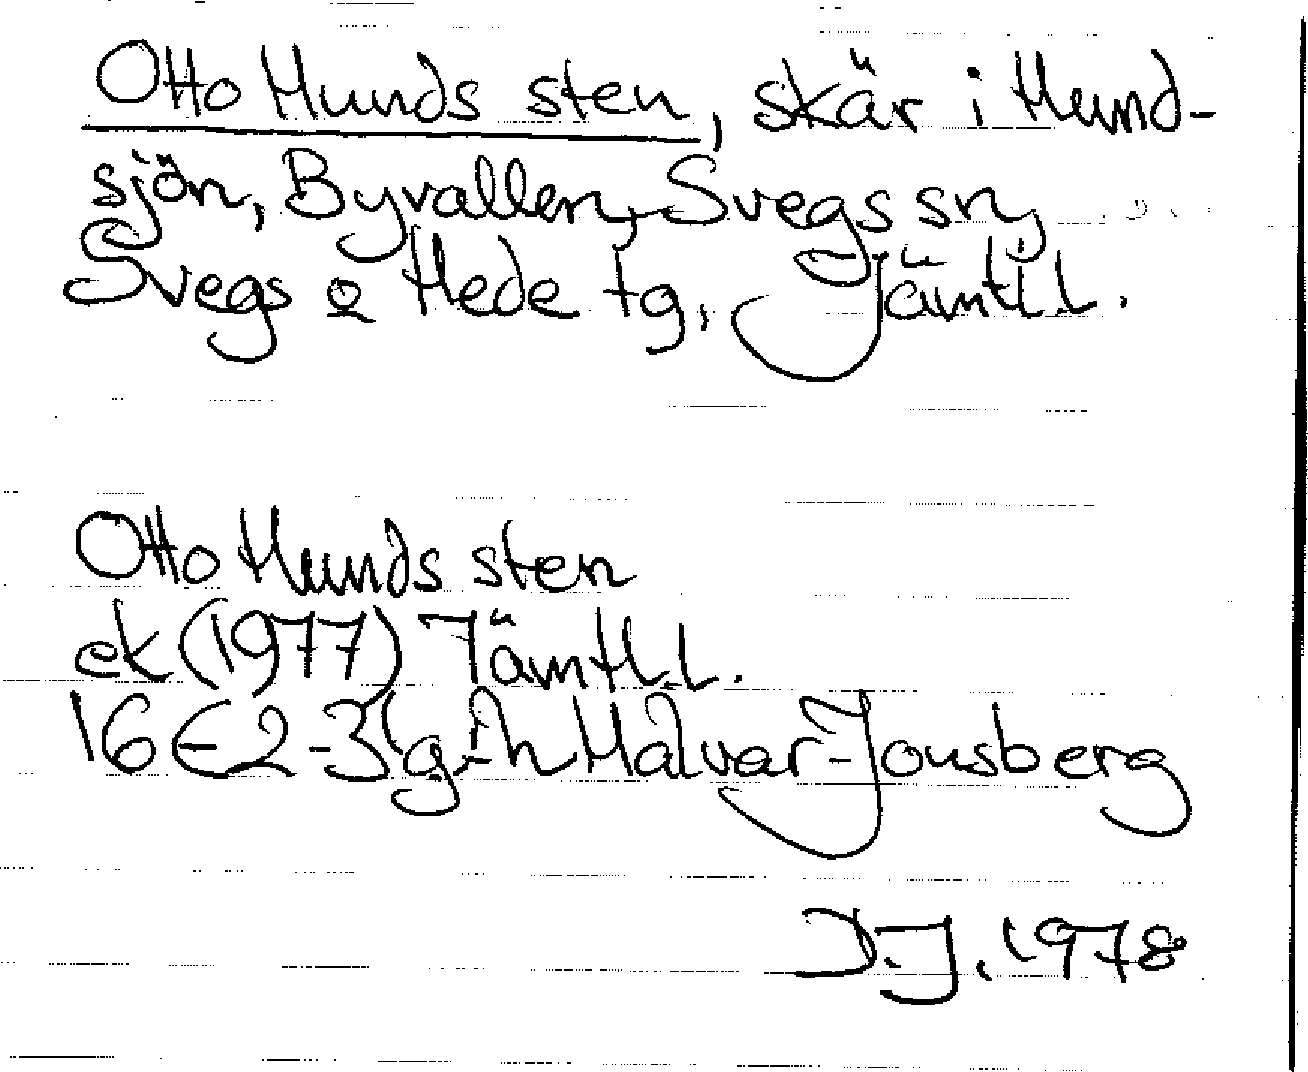 Otto Hunds sten, skär i Hund-
sjön, Byvallen, Svegs sn,
Svegs o Hede tg, Jämtl.l.
Otto Hunds sten
ek (1977) Jämtl.l.
16E 2-3 g-h Malvar-Jonsberg
D.J. 1978